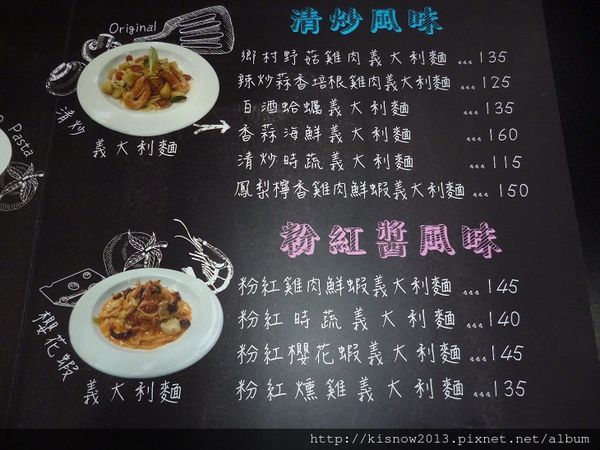 清炒風味
Original
清炒
義大利麵
鄉村野菇雞肉義大利麵 ...135
辣炒蒜香培根雞肉義大利麵 ...125
白酒蛤蠣義大利麵 ...135
香蒜海鮮義大利麵 ...160
清炒時蔬義大利麵 ...115
鳳梨檸香雞肉鮮蝦義大利麵 ...150
Pasta
粉紅醬風味
櫻花蝦
義大利麵
粉紅雞肉鮮蝦義大利麵 ...145
粉紅時蔬義大利麵 ...140
粉紅櫻花蝦義大利麵 ...145
粉紅燻雞義大利麵 ...135
http://kisnow2013.pixnet.net/album